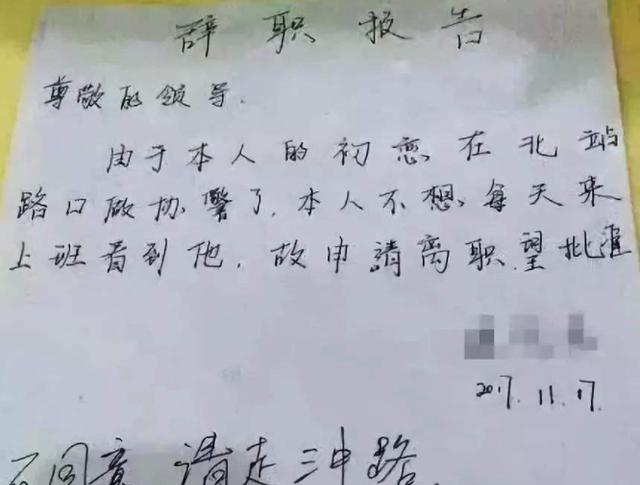 辞职报告
尊敬的领导.
由于本人的初恋在北站
路口做协警了,本人不想每天来
上班看到他,故申請离职望批准
2017.11.17.
不同意 请走三冲路.